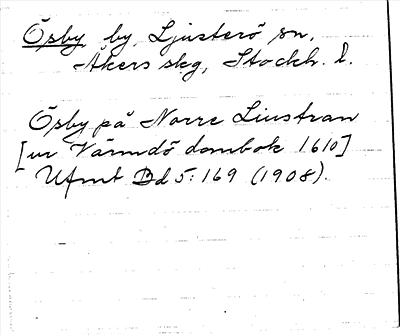 Ösby by, Ljusterö sn,
Åkers skg, Stockh. l.
Ösby på Norre Liustran
[ur Värmdö dombok 1610]
Ufmt Bd 5:169 (1908).